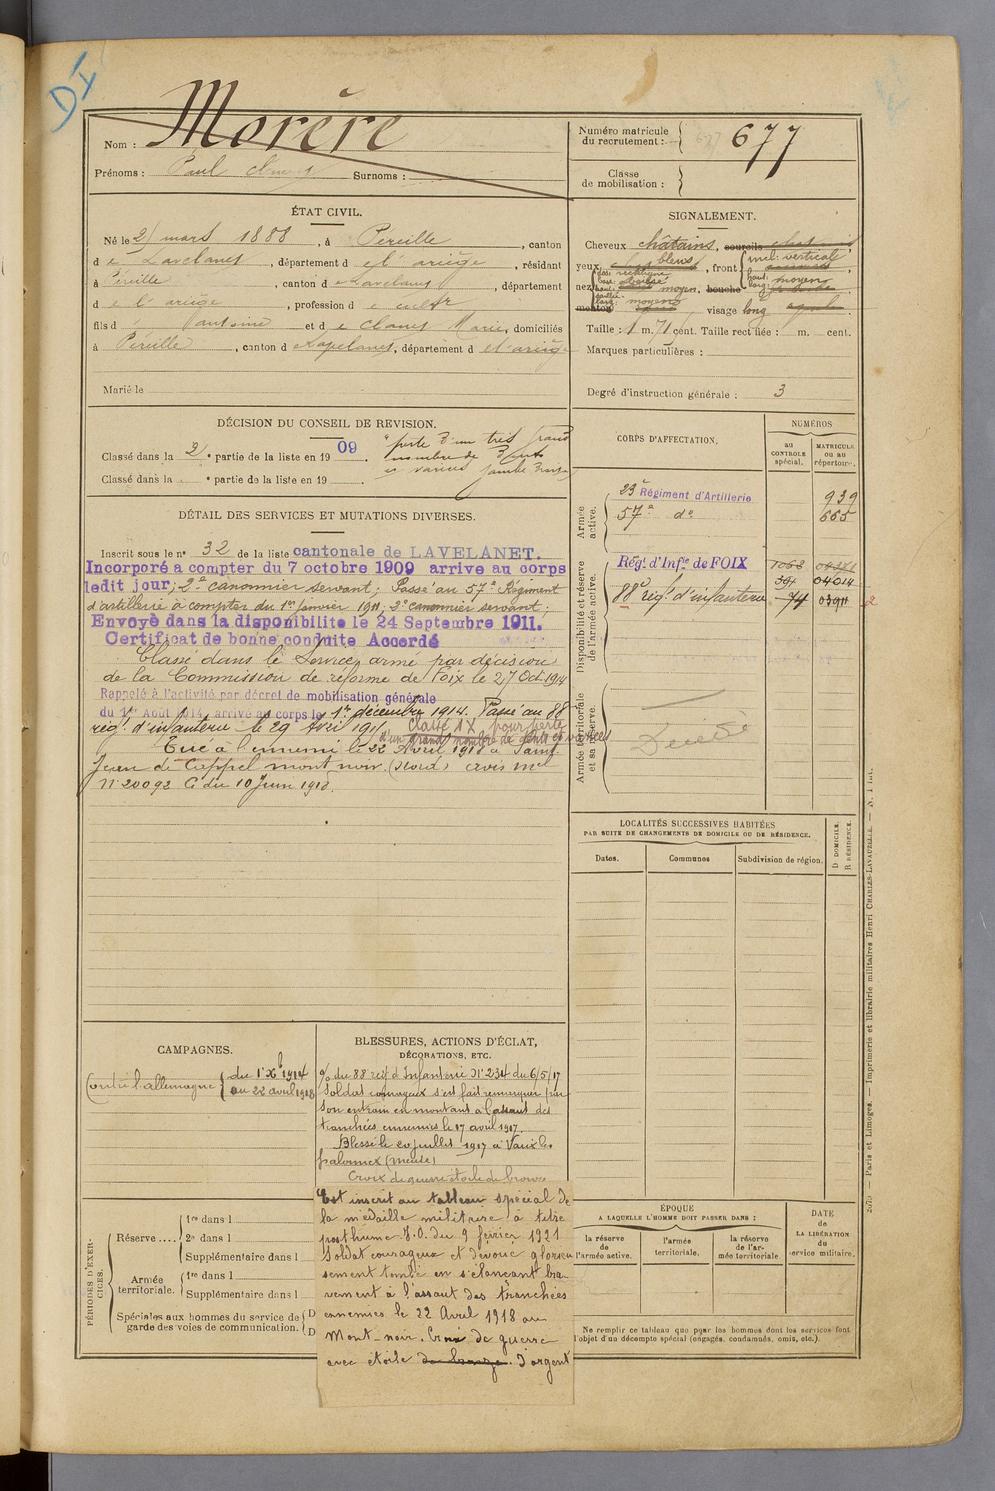 DI
Nom : Morère
Prénoms : Paul Surnoms :
Numéro matricule
du recrutement : 677
Classe
de mobilisation :
ÉTAT CIVIL.
Né le 21 mars 1888, à Péreille, canton
de Lavelanet, département de l'ariège, résidant
à Péreille, canton de Lavelanet, département
de l'ariège, profession de cultr
fils d Antoine et de Clanet Marie, domiciliés
à Péreille, canton de Lavelanet, département de l'ariège
Marié le
SIGNALEMENT.
Cheveux châtains, sourcils
yeux bleus, front incl: verticale
haut: moyen
larg: moyen
nez dos: rectiligne
base:
haut:
saillie:
larg: moyen, bouche
menton visage long
Taille : 1 m. 71 cent. Taille rectifiée : m. cent.
Marques particulières :
Degré d'instruction générale : 3
DÉCISION DU CONSEIL DE REVISION.
Classé dans la 2e partie de la liste en 1909. "perte d'un très grand
nombre de dents
et varices jambe droite"
Classé dans la e partie de la liste en 19
DÉTAIL DES SERVICES ET MUTATIONS DIVERSES.
Inscrit sous le n° 32 de la liste cantonale de LAVELANET.
Incorporé a compter du 7 octobre 1909 arrive au corps
ledit jour; 2e canonnier servant; Passé au 57e Régiment
d'artillerie à compter du 1er Janvier 1911; 2e canonnier servant;
Envoyé dans la disponibilite le 24 Septembre 1911.
Certificat de bonne conduite Accordé
Classé dans le Service armé par décision
de la Commission de réforme de Foix le 27 Oct. 1914
Rappelé à l'activité par décret de mobilisation générale
du 1er Août 1914, arrivé au corps le 1er décembre 1914. Passé au 88
régt d'infanterie le 29 Avril 191
Classé 1X pour perte
d'un grand nombre de dents et varices
Tué à l'ennemi le 22 Avril 1918 à Saint
Jean de Cappel mont noir (Nord) avis mel
N° 20092 C du 10 Juin 1918.
CORPS D'AFFECTATION.
NUMÉROS
au
CONTROLE
spécial.
MATRICULE
ou au
répertoire.
Armée
active.
23e Régiment d'Artillerie 939
57e do 665
Disponibilité et réserve
de l'armée active.
Régt d'Infie de FOIX
391 04014
88e régt d'infanterie 74 03911
Armée territoriale
et sa réserve.
Décédé
LOCALITÉS SUCCESSIVES HABITÉES
PAR SUITE DE CHANGEMENTS DE DOMICILE OU DE RÉSIDENCE.
Dates.
Communes
Subdivision de région.
D DOMICILE.
R RÉSIDENCE.
CAMPAGNES.
Contre l'allemagne du 1er Xbre 1914
au 22 avril 1918
BLESSURES, ACTIONS D'ÉCLAT,
DÉCORATIONS, ETC.
% du 88 régt d'Infanterie N° 234 du 6/5/17
Soldat courageux s'est fait remarquer par
son entrain en montant à l'assaut des
tranchées ennemies le 17 avril 1917.
Blessé le 20 juillet 1917 à Vaux les
palameix (Meuse)
Croix de guerre étoile de bronze
Est inscrit au tableau spécial de
la médaille militaire à titre
posthume J.O. du 9 février 1921
Soldat courageux et dévoué glorieu
sement tombé en s'élançant bra-
vement à l'assaut des tranchées
ennemies le 22 Avril 1918 au
Mont-noir. Croix de guerre
avec étoile de bronze. d'argent
PÉRIODES D'EXER-
CICES.
Réserve....
1re dans l
2e dans l
Supplémentaire dans l
Armée
territoriale.
1re dans l
Supplémentaire dans l
Spéciales aux hommes du service de
garde des voies de communication.
D
D
ÉPOQUE
A LAQUELLE L'HOMME DOIT PASSER DANS :
la réserve
de l'armée active.
l'armée
territoriale.
la réserve
de l'ar-
mée territoriale.
DATE
de
LA LIBÉRATION
du
service militaire.
Ne remplir ce tableau que pour les hommes dont les services font
l'objet d'un décompte spécial (engagés, condamnés, omis, etc.).
Paris et Limoges. — Imprimerie et librairie militaires Henri CHARLES-LAVAUZELLE.